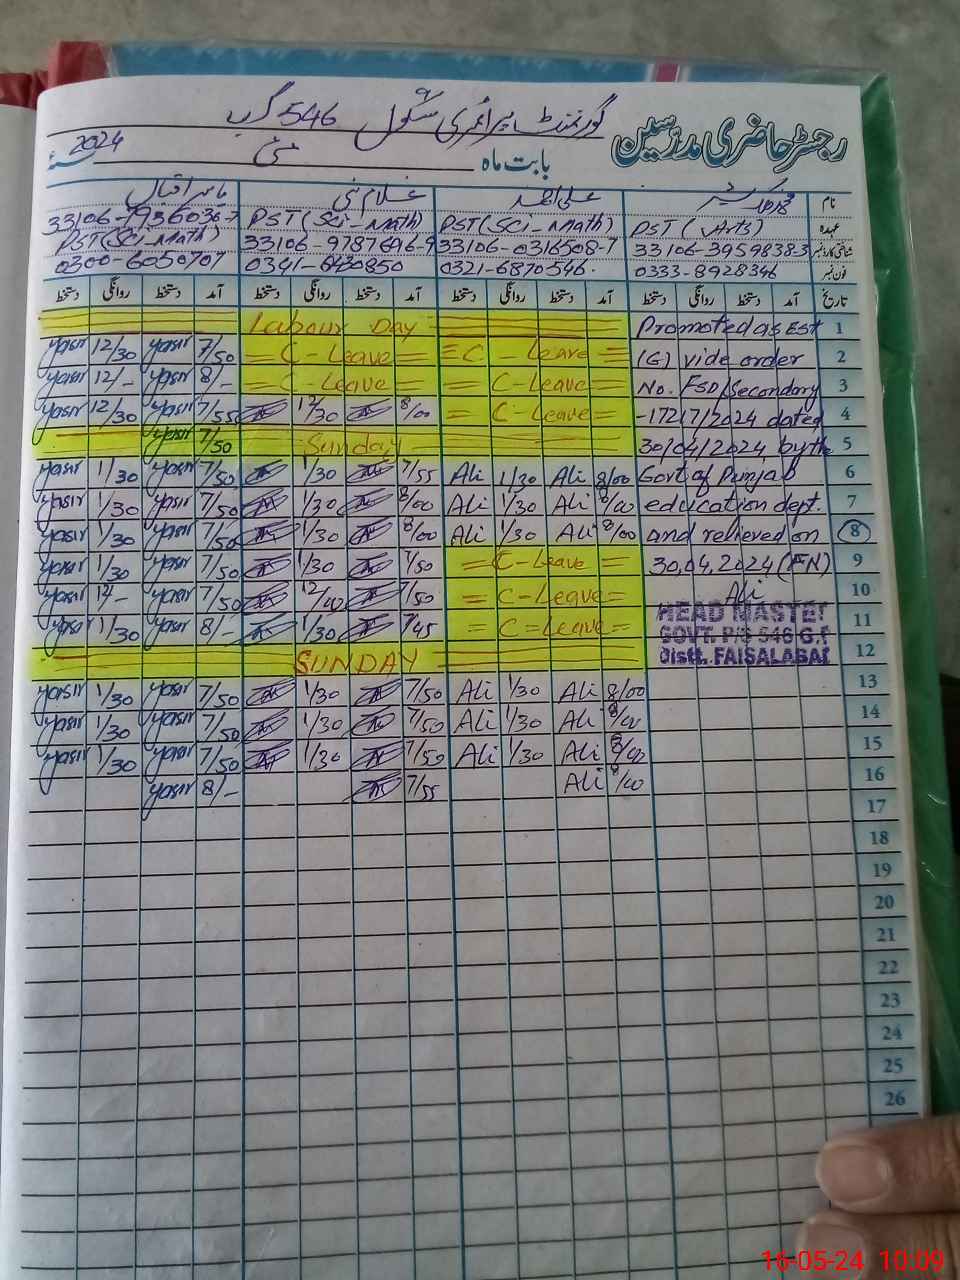 رجسٹر حاضری مدرسین گورنمنٹ پرائمری سکول 546 گ ب
بابت ماہ مئی 2024
نام علی احمد غلام نبی یاسر اقبال
عہدہ PST (Arts) PST (Sci-Math) PST (Sci-Math) 33106-7936036-7
شناختی کارڈ نمبر 33106-3959838-3 33106-0316508-7 33106-9787696-9 PST (Sci-Math)
فون نمبر 0333-8928346 0321-6870546. 0341- 0300-6050707
تاریخ آمد دستخط روانگی دستخط آمد دستخط روانگی دستخط آمد دستخط روانگی دستخط آمد دستخط روانگی دستخط
Labour Day Promoted as Est 1
yasir 12/30 yasir 7/50 = C-Leave = = C-Leave = (G) vide order 2
yasir 12/- yasir 8/- = C-Leave = = C-Leave = No. FSD/Secondary 3
yasir 12/30 yasir 7/55 12/30 8/00 = C-Leave = -17217/2024 dated 4
yasir 7/50 Sunday 30/04/2024 by the 5
yasir 1/30 yasir 7/50 1/30 7/55 Ali 1/30 Ali 8/00 Govt of Punjab 6
yasir 1/30 yasir 7/50 1/30 8/00 Ali 1/30 Ali 8/00 education dept. 7
yasir 1/30 yasir 7/50 1/30 8/00 Ali 1/30 Ali 8/00 and relieved on 8
yasir 1/30 yasir 7/50 1/30 7/50 = C-Leave = 30.04.2024 (FN) 9
yasir 12/- yasir 7/50 12/00 7/50 = C-Leave = Ali 10
yasir 1/30 yasir 8/- 1/30 7/45 = C=Leave = HEAD MASTER 11
GOVT. P/S 546 G.B
SUNDAY Distt. FAISALABAD 12
yasir 1/30 yasir 7/50 1/30 7/50 Ali 1/30 Ali 8/00 13
yasir 1/30 yasir 7/50 1/30 7/50 Ali 1/30 Ali 8/00 14
yasir 1/30 yasir 7/50 1/30 7/50 Ali 1/30 Ali 8/00 15
yasir 8/- 7/55 Ali 8/00 16
17
18
19
20
21
22
23
24
25
26
16-05-24 10:09